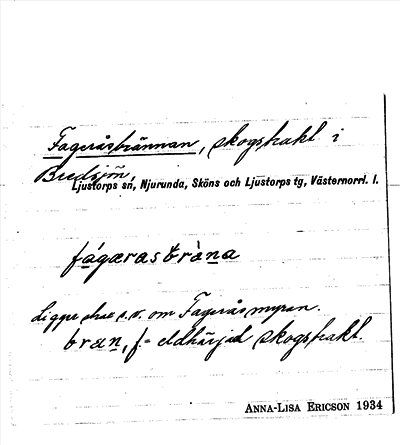 Fageråsbrännan, skogstrakt i
Bredsjön,
Ljustorps sn, Njurunda, Sköns och Ljustorps tg, Västernorrl. l.
fágærasbràna
Ligger strax s.v. om Fageråsmyran.
bræn, f. = eldhärjad skogstrakt.
ANNA-LISA ERICSON 1934